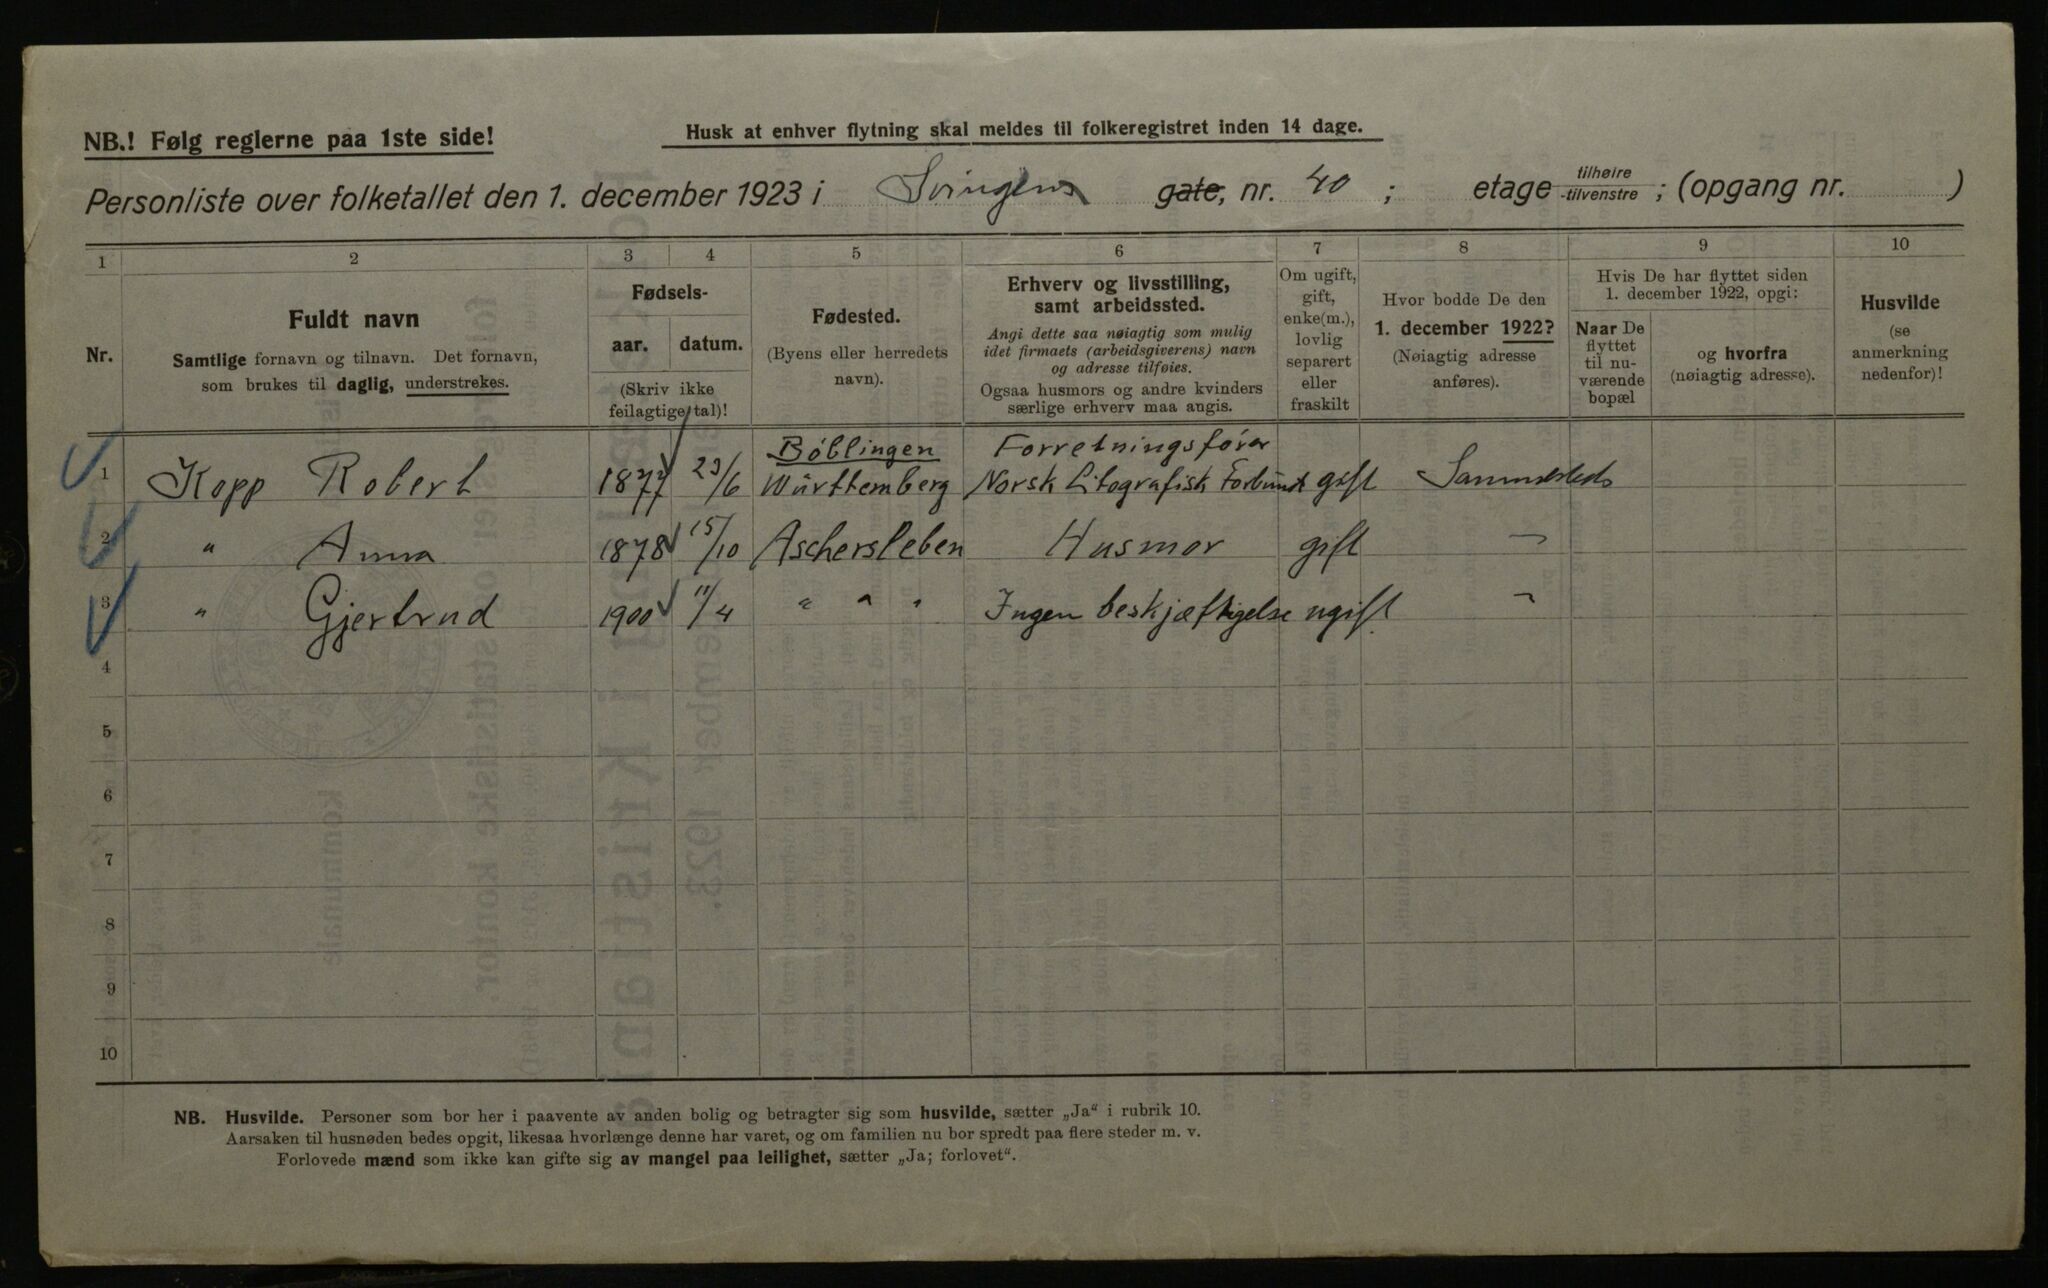 NB.! Følg reglerne paa 1ste side!
Husk at enhver flytning skal meldes til folkeregistret inden 14 dage.
Personliste over folketallet den 1. december 1923 i Svingen gate, nr. 40 ; etage tilhøire tilvenstre ; (opgang nr. )
1 2 3 4 5 6 7 8 9 10
Nr.
Fuldt navn
Samtlige fornavn og tilnavn. Det fornavn,
som brukes til daglig, understrekes.
Fødsels-
aar. datum.
(Skriv ikke
feilagtige tal)!
Fødested.
(Byens eller herredets
navn).
Erhverv og livsstilling,
samt arbeidssted.
Angi dette saa nøiagtig som mulig
idet firmaets (arbeidsgiverens) navn
og adresse tilføies.
Ogsaa husmors og andre kvinders
særlige erhverv maa angis.
Om ugift,
gift,
enke(m.),
lovlig
separert
eller
fraskilt
Hvor bodde De den
1. december 1922?
(Nøiagtig adresse
anføres).
Hvis De har flyttet siden
1. december 1922, opgi:
Naar De
flyttet
til nu-
værende
bopæl
og hvorfra
(nøiagtig adresse).
Husvilde
(se
anmerkning
nedenfor)!
Böblingen Forretningsfører
1 Kopp Robert 1877 23/6 Württemberg Norsk Litografisk Forbund gift Sammesteds
2 " Anna 1878 15/10 Aschersleben Husmor gift "
3 " Gjertrud 1900 11/4 " " " Ingen beskjæftigelse ugift "
4
5
6
7
8
9
10
NB. Husvilde. Personer som bor her i paavente av anden bolig og betragter sig som husvilde, sætter „Ja“ i rubrik 10.
Aarsaken til husnøden bedes opgit, likesaa hvorlænge denne har varet, og om familien nu bor spredt paa flere steder m. v.
Forlovede mænd som ikke kan gifte sig av mangel paa leilighet, sætter „Ja; forlovet“.